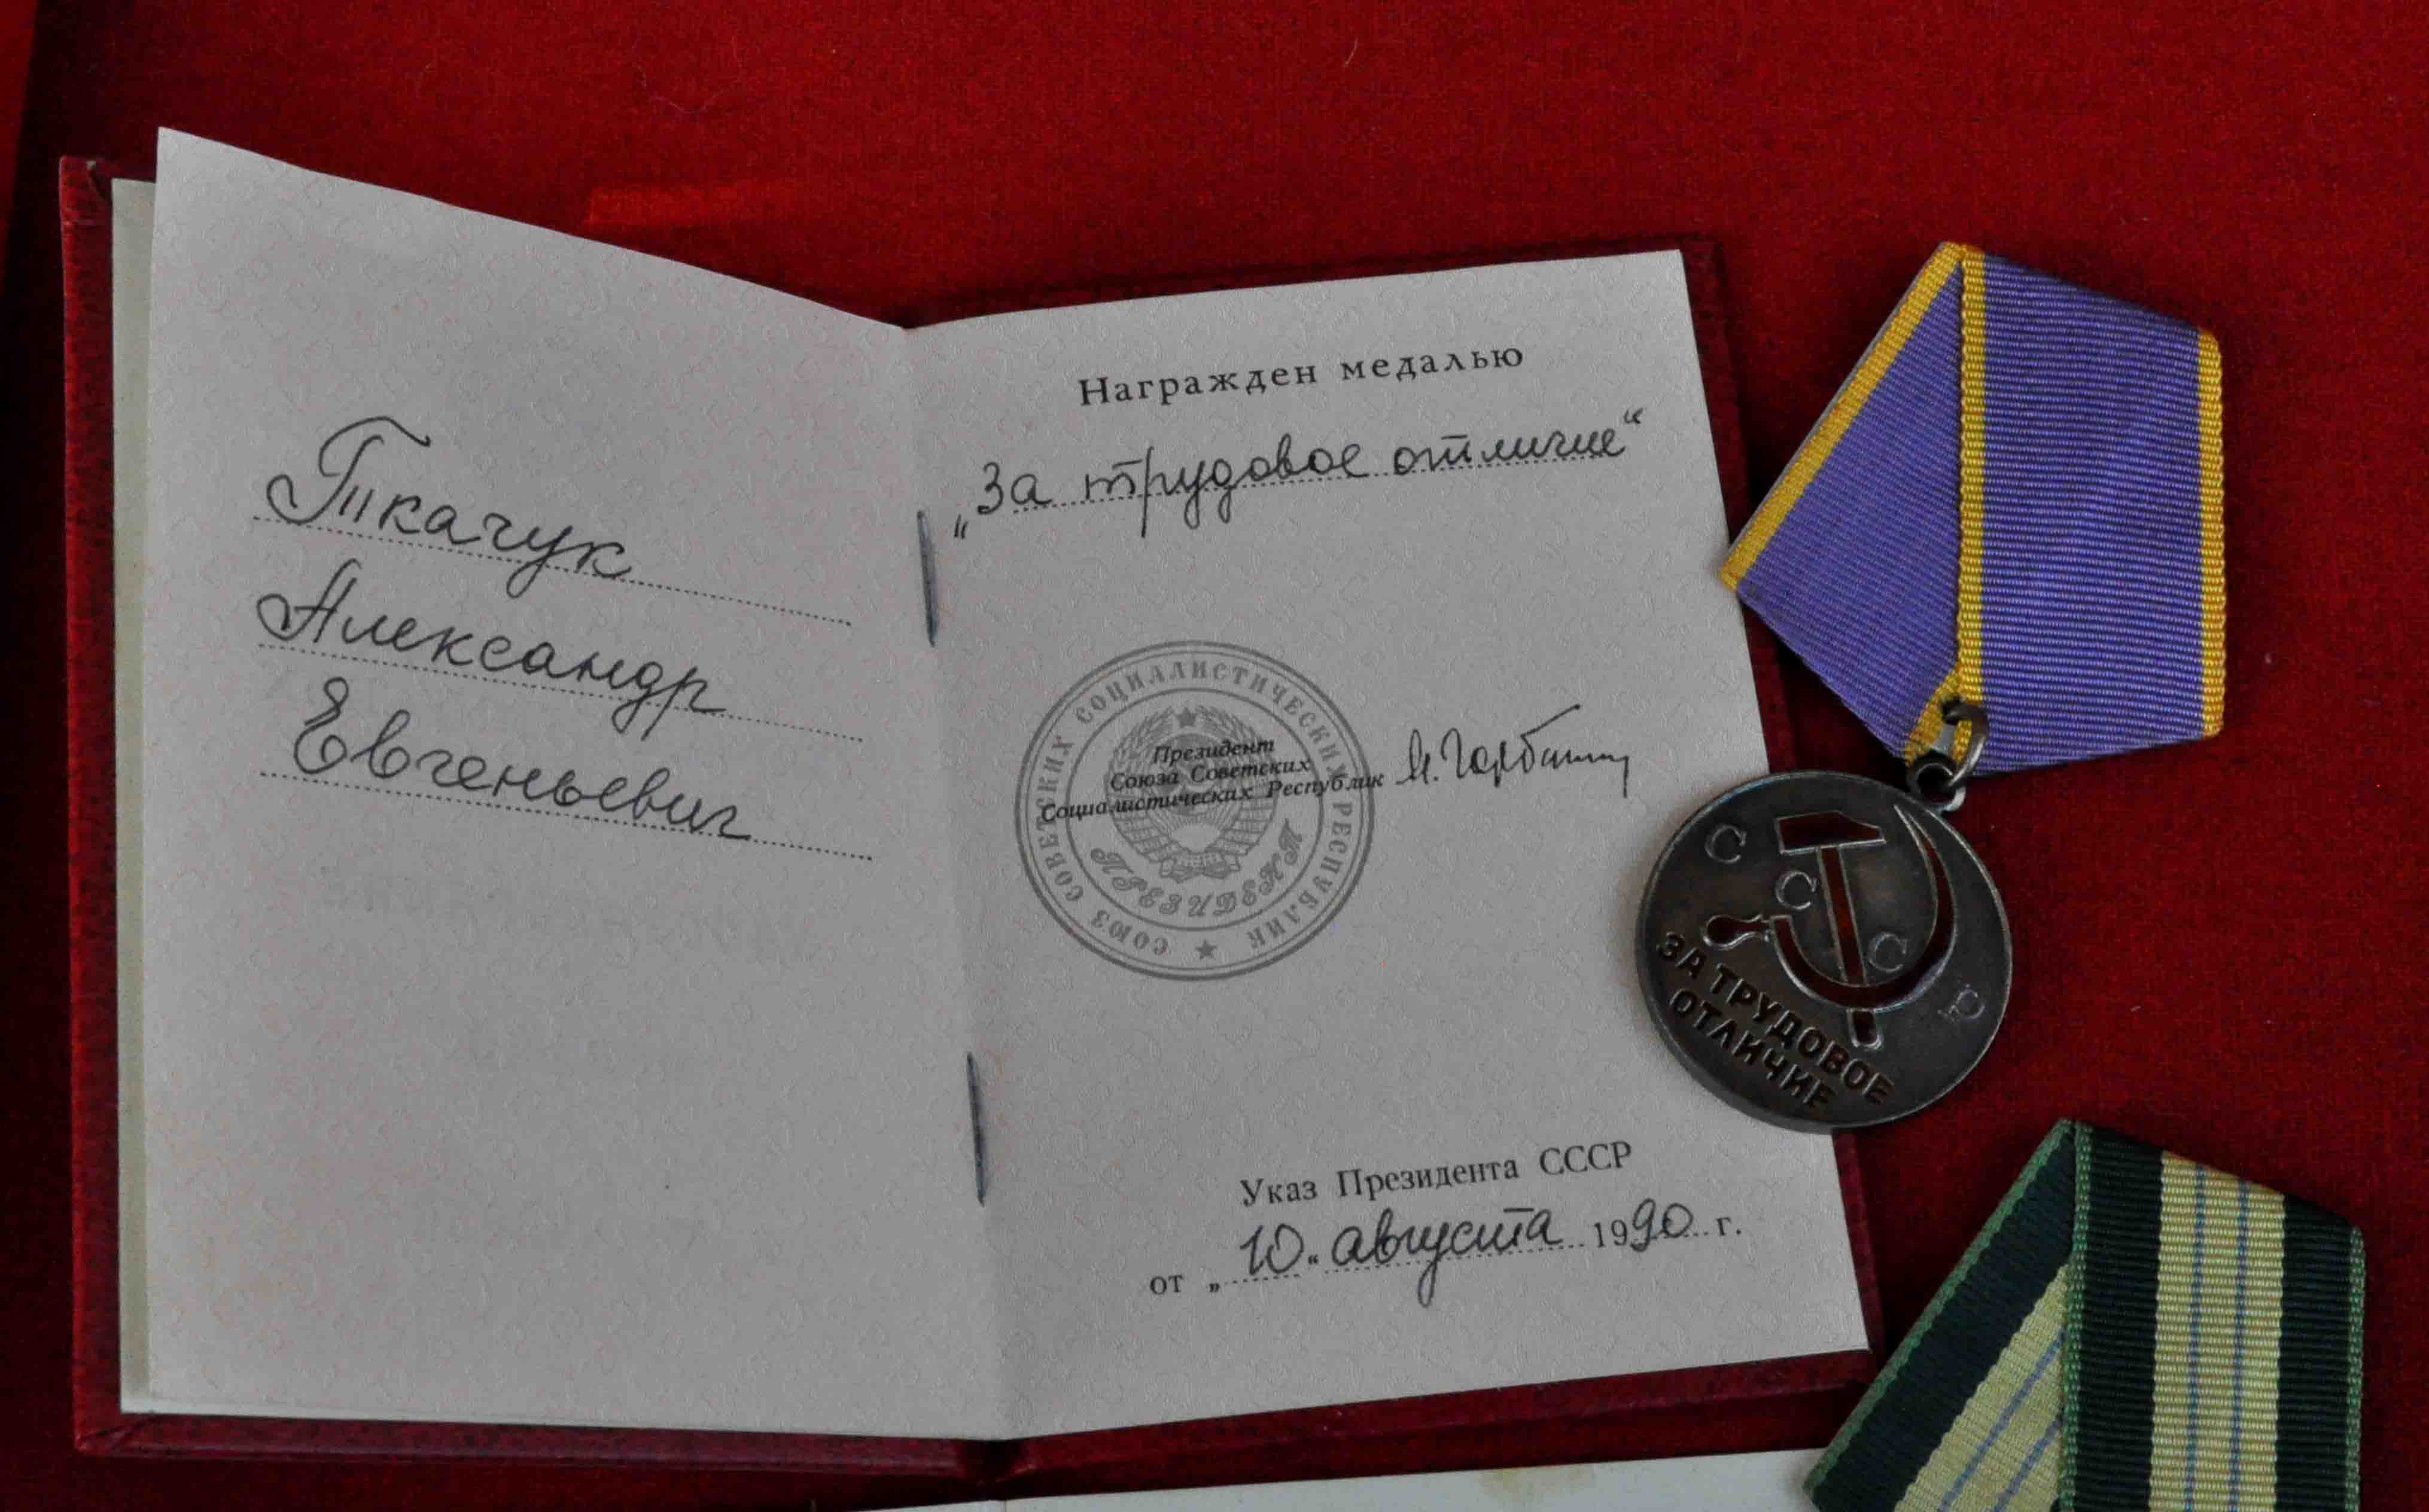 Ткачук
Александр
Евгеньевич
Награжден медалью
„За трудовое отличие“
Президент
Союза Советских
Социалистических Республик М. Горбачев
СОЮЗ СОВЕТСКИХ СОЦИАЛИСТИЧЕСКИХ РЕСПУБЛИК
ПРЕЗИДЕНТ
Указ Президента СССР
от „10“ августа 1990 г.
С
С
С
Р
ЗА ТРУДОВОЕ
ОТЛИЧИЕ